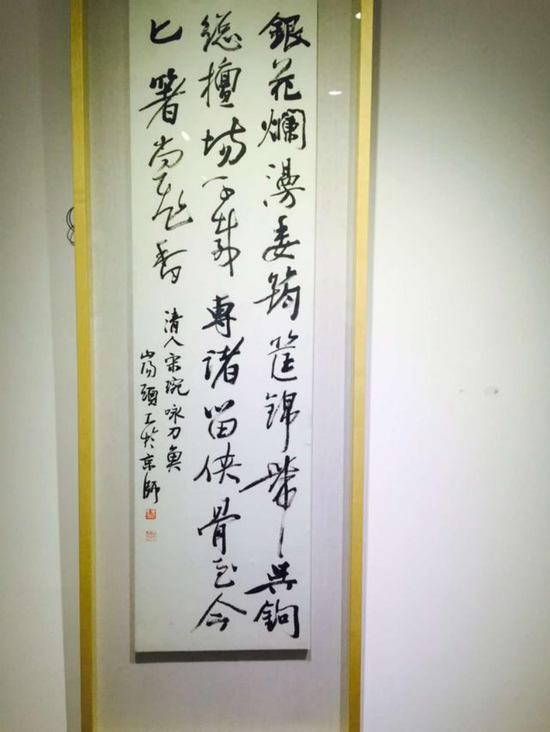 銀花爛漫委筠筐錦帶吳鉤
總擅場千載專諸留侠骨至今
匕箸尚飛香
清人宋琬咏刀魚
於京師